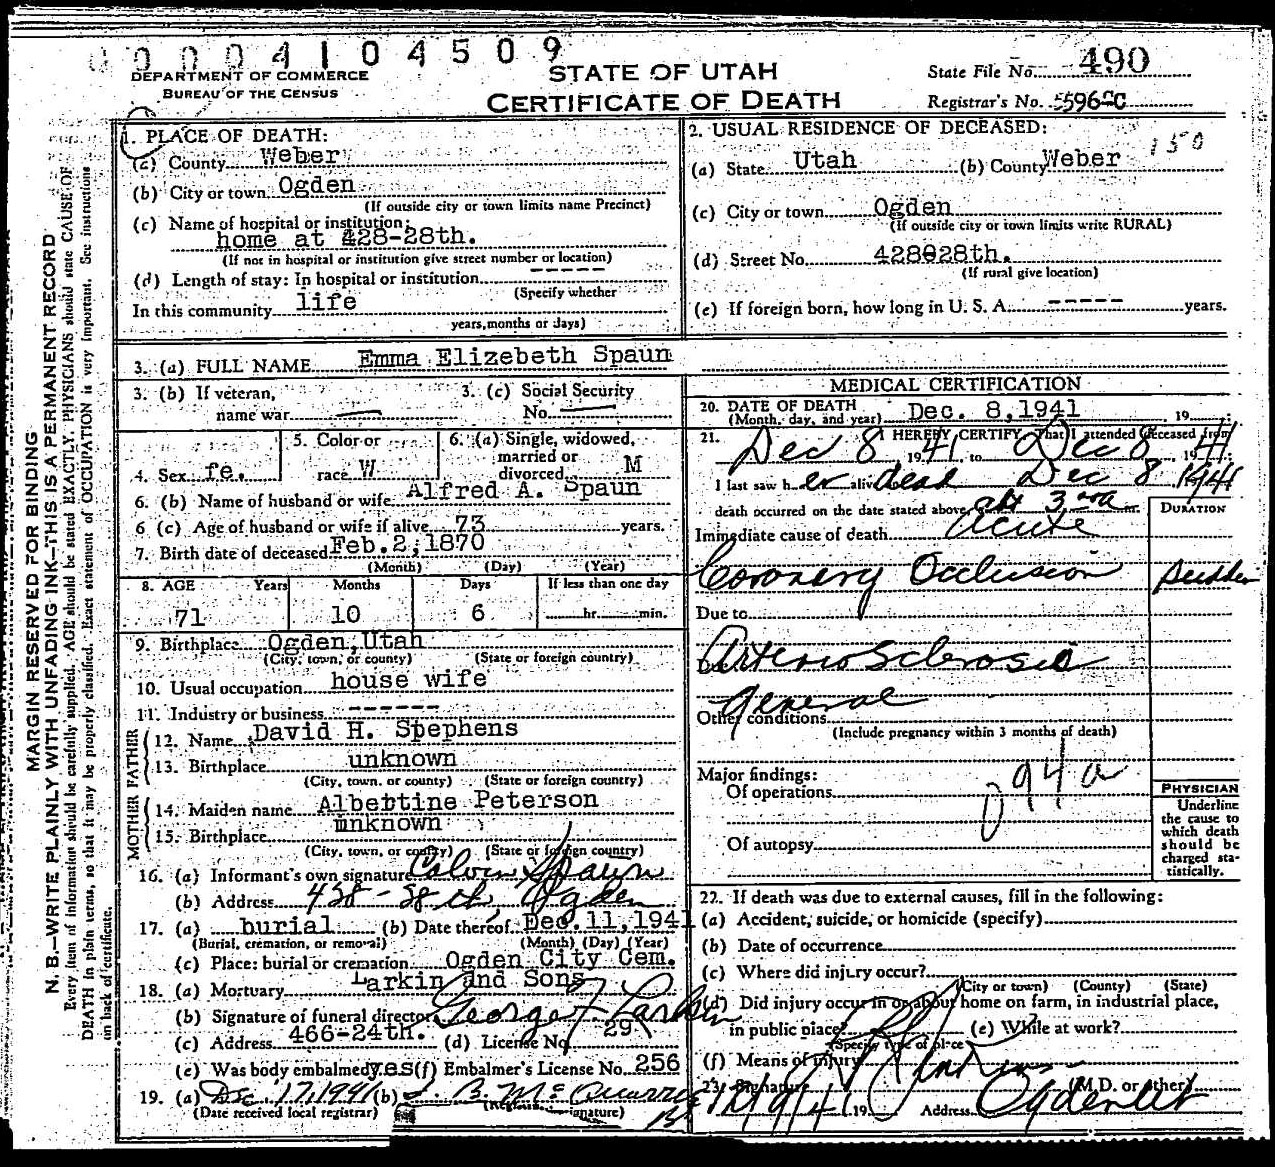 00004104509
DEPARTMENT OF COMMERCE
BUREAU OF THE CENSUS
STATE OF UTAH
CERTIFICATE OF DEATH
State File No. 490
Registrar's No. 596
1. PLACE OF DEATH:
(a) County Weber
(b) City or town Ogden
(If outside city or town limits name Precinct)
(c) Name of hospital or institution:
home at 428-28th.
(If not in hospital or institution give street number or location)
(d) Length of stay: In hospital or institution ------
(Specify whether
In this community life
years, months or days)
2. USUAL RESIDENCE OF DECEASED:
150
(a) State Utah (b) County Weber
(c) City or town Ogden
(If outside city or town limits write RURAL)
(d) Street No. 428028th.
(If rural give location)
(e) If foreign born, how long in U. S. A. ------ years.
3. (a) FULL NAME Emma Elizebeth Spaun
3. (b) If veteran,
name war —
3. (c) Social Security
No. —
4. Sex fe.
5. Color or
race W
6. (a) Single, widowed,
married or
divorced M
6. (b) Name of husband or wife Alfred A. Spaun
6 (c) Age of husband or wife if alive 73 years.
7. Birth date of deceased Feb. 2, 1870
(Month) (Day) (Year)
8. AGE Years Months Days If less than one day
71 10 6 hr. min.
9. Birthplace Ogden, Utah
(City, town, or county) (State or foreign country)
10. Usual occupation house wife
11. Industry or business -------
FATHER
12. Name David H. Stephens
13. Birthplace unknown
(City, town, or county) (State or foreign country)
MOTHER
14. Maiden name Albertine Peterson
15. Birthplace unknown
(City, town, or county) (State or foreign country)
16. (a) Informant's own signature Calvin Spaun
(b) Address 428-28th, Ogden
17. (a) burial (b) Date thereof Dec. 11, 1941
(Burial, cremation, or removal) (Month) (Day) (Year)
(c) Place: burial or cremation Ogden City Cem.
18. (a) Mortuary Larkin and Sons
(b) Signature of funeral director George F Larkin
(c) Address 466-24th. (d) License No. 29
(e) Was body embalmed yes (f) Embalmer's License No. 256
19. (a) Dec 17, 1941 (b)
(Date received local registrar) signature)
MEDICAL CERTIFICATION
20. DATE OF DEATH Dec. 8, 1941 19
(Month, day, and year)
21. I HEREBY CERTIFY That I attended deceased from
Dec 8 1941 to Dec 8 1941
I last saw her alive dead Dec 8 1941
death occurred on the date stated above, at 3
Immediate cause of death Acute
Coronary Occlusion
DURATION
Sudden
Due to
Arterio Sclerosis
General
Other conditions
(Include pregnancy within 3 months of death)
Major findings:
Of operations
94a
Of autopsy
PHYSICIAN
Underline
the cause to
which death
should be
charged sta-
tistically.
22. If death was due to external causes, fill in the following:
(a) Accident, suicide, or homicide (specify)
(b) Date of occurrence
(c) Where did injury occur?
(City or town) (County) (State)
(d) Did injury occur in or about home on farm, in industrial place,
in public place? (e) While at work?
(Specify type of place
(f) Means of injury
23. Signature (M.D. or other)
12/9/41 19 Address Ogden Ut
MARGIN RESERVED FOR BINDING
N. B.—WRITE PLAINLY WITH UNFADING INK—THIS IS A PERMANENT RECORD
Every item of information should be carefully supplied. AGE should be stated EXACTLY. PHYSICIANS should state CAUSE OF
DEATH in plain terms, so that it may be properly classified. Exact statement of OCCUPATION is very important. See instructions
on back of certificate.